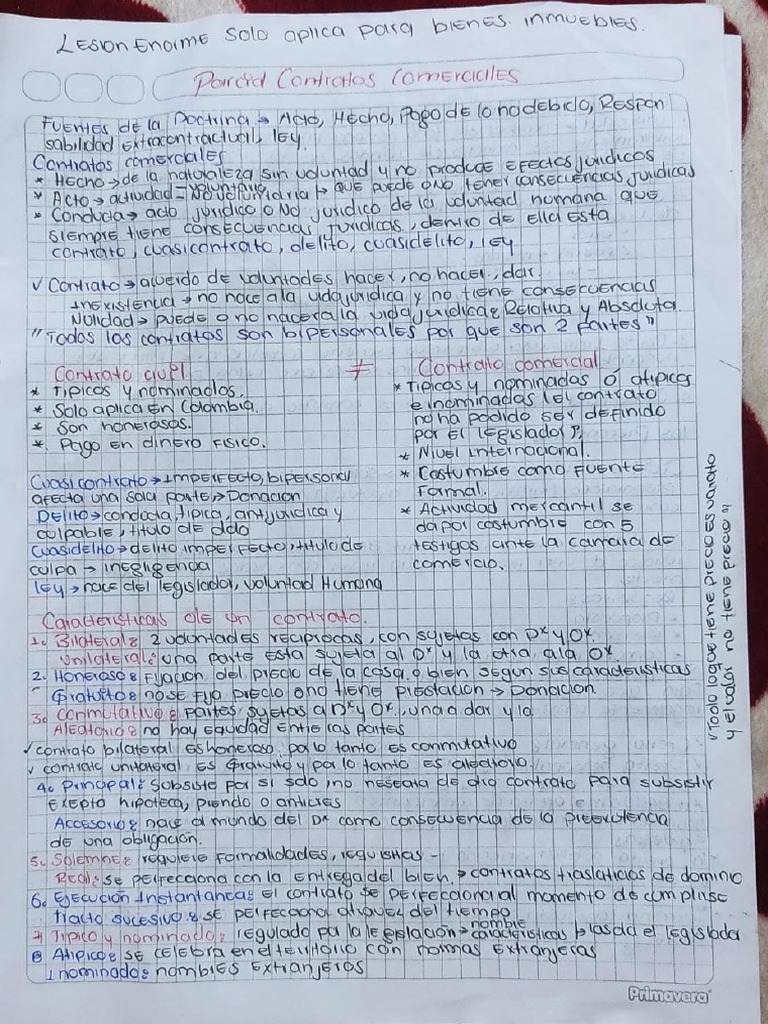 Lesion Enorme solo aplica para bienes inmuebles.
Parcial Contratos Comerciales
Fuentes de la Doctrina → Acto, Hecho, Pago de lo no debido, Respon
sabilidad extracontractual, ley.
Contratos comerciales
* Hecho → de la naturaleza sin voluntad y no produce efectos juridicos
* Acto → actividad = voluntaria que puede o no tener consecuencias juridicas
* Conducta → acto juridico o no juridico de la voluntad humana que
siempre tiene consecuencias juridicas, dentro de ella esta
contrato, cuasicontrato, delito, cuasidelito, ley
✓ Contrato → acuerdo de voluntades hacer, no hacer, dar
Inexistencia → no nace a la vida juridica y no tiene consecuencias
Nulidad → puede o no nacer a la vida juridica: Relativa y Absoluta.
"Todos los contratos son bipersonales por que son 2 partes"
Contrato civil ≠ Contrato comercial
* Tipicos y nominados.
* Solo aplica en Colombia.
* Son honerosos.
* Pago en dinero fisico.
* Tipicos y nominados ó atipicos
e inominados (el contrato
no ha podido ser definido
por el legislador).
* Nivel internacional.
* Costumbre como fuente
formal.
* Actividad mercantil se
da por costumbre con 5
testigos ante la camara de
comercio.
Cuasicontrato → Imperfecto, bipersonal
afecta una sola parte → Donacion
Delito → conducta, tipica, antijuridica y
culpable, titulo de dolo
Cuasidelito → delito imperfecto, titulo de
culpa → inegligencia
ley → nace del legislador, voluntad Humana
"Todo lo que tiene precio es varato
y el valor no tiene precio"
Caracteristicas de un contrato.
1. Bilateral: 2 voluntades reciprocas, con sujetas con Dx y Ox.
Unilateral: una parte esta sujeta al Dx y la otra a la Ox.
2. Honeroso: Fijacion del precio de la cosa o bien segun sus caracteristicas
Gratuito: no se fija precio o no tiene prestacion → Donacion
3. Conmutativo: partes sujetas a Dx y Ox, una a dar y la
Aleatorio: no hay equidad entre las partes
✓ contrato bilateral es honeroso, por lo tanto es conmutativo
✓ contrato unilateral es gratuito y por lo tanto es aleatorio.
4. Principal: Subsiste por si solo, no nesecita de otro contrato para subsistir
Exepto hipoteca, prenda o anticres
Accesorio: nace al mundo del Dx como consecuencia de la preexistencia
de una obligación.
5. Solemne: requiere formalidades, requisitos -
Real: se perfecciona con la entrega del bien. → contratos traslaticios de dominio
6. Ejecucion Instantanea: El contrato se perfecciona al momento de cumplirse
tracto sucesivo: se perfecciona atravez del tiempo
nombre
7) Tipico y nominado: regulado por la legislacion → caracteristicas plasado el legislador
8 Atipico: se celebra en el territorio con normas Extranjeras
Inominado: nombres Extranjeros
Primavera